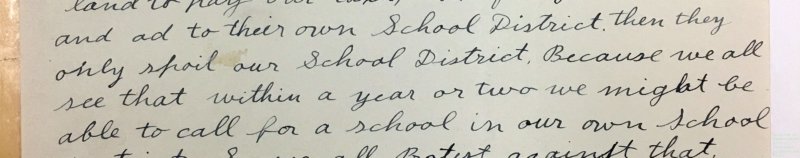 land to pay our
and ad to their own School District. then they
only spoil our School District. Because we all
see that within a year or two we might be
able to call for a school in our own School
all against that.